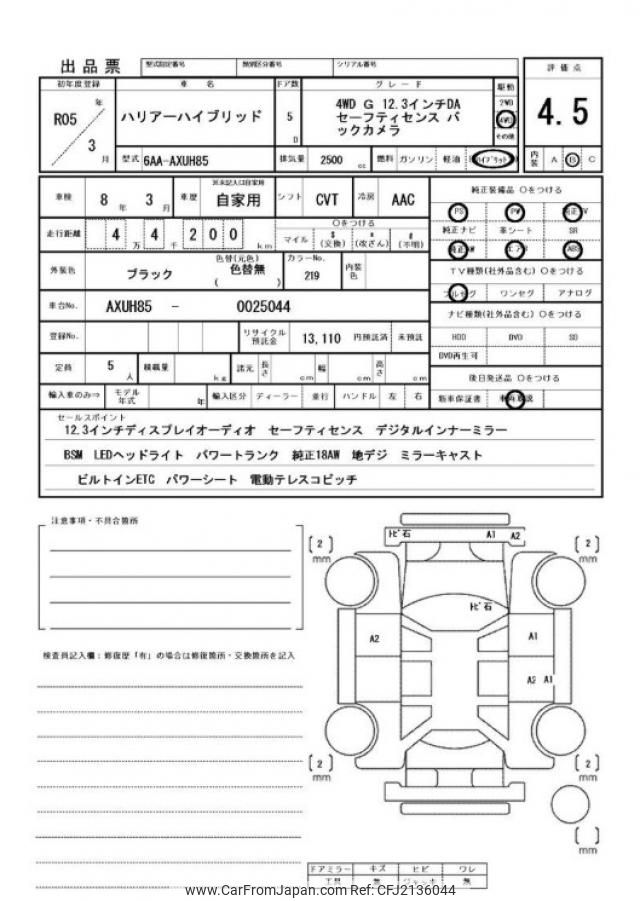 出品票 型式指定番号 類別区分番号 シリアル番号
評価点
4.5
内装 A B C
初年度登録 車名 ドア数 グレード 駆動
R05 年 3 月
ハリアーハイブリッド
5 D
4WD G 12.3インチDA
セーフティセンス バ
ックカメラ
2WD
4WD
その他
型式 6AA-AXUH85 排気量 2500 cc 燃料 ガソリン 軽油 ハイブリッド
車検 8 年 3 月 車歴 自家用 シフト CVT 冷房 AAC
走行距離 4 万 4 千 2 0 0 km
○をつける
マイル $ (交換) * (改ざん) # (不明)
外装色 ブラック 色替(元色) 色替無 ( ) カラーNo. 219 内装色
車台No. AXUH85 - 0025044
登録No. リサイクル預託金 13,110 円預託済 未預託
定員 5 人 積載量 kg 諸元 長さ cm 幅 cm 高さ cm
輸入車のみ⇒ モデル年式 年 輸入区分 ディーラー 並行 ハンドル 左 右
純正装備品 ○をつける
PS PW
純正ナビ 革シート SR
ABS
TV種類(社外品含む) ○をつける
フルセグ ワンセグ アナログ
ナビ種類(社外品含む) ○をつける
HDD DVD SD
DVD再生可
後日発送品 ○をつける
新車保証書
セールスポイント
12.3インチディスプレイオーディオ セーフティセンス デジタルインナーミラー
BSM LEDヘッドライト パワートランク 純正18AW 地デジ ミラーキャスト
ビルトインETC パワーシート 電動テレスコピッチ
注意事項・不具合箇所
検査員記入欄:修復歴「有」の場合は修復箇所・交換箇所を記入
トビ石 A1 A2
[2] mm
[2] mm
トビ石
A2
A1
A2 A1
[2] mm
[2] mm
[ ] mm
ドアミラー キズ ヒビ ワレ
工具 無 ジャッキ 無
www.CarFromJapan.com Ref: CFJ2136044